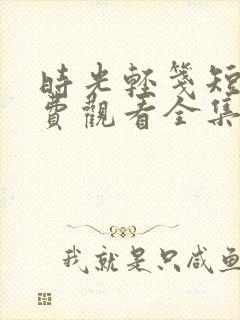 時光輕箋短
費觀看全集
我就是只咸鱼